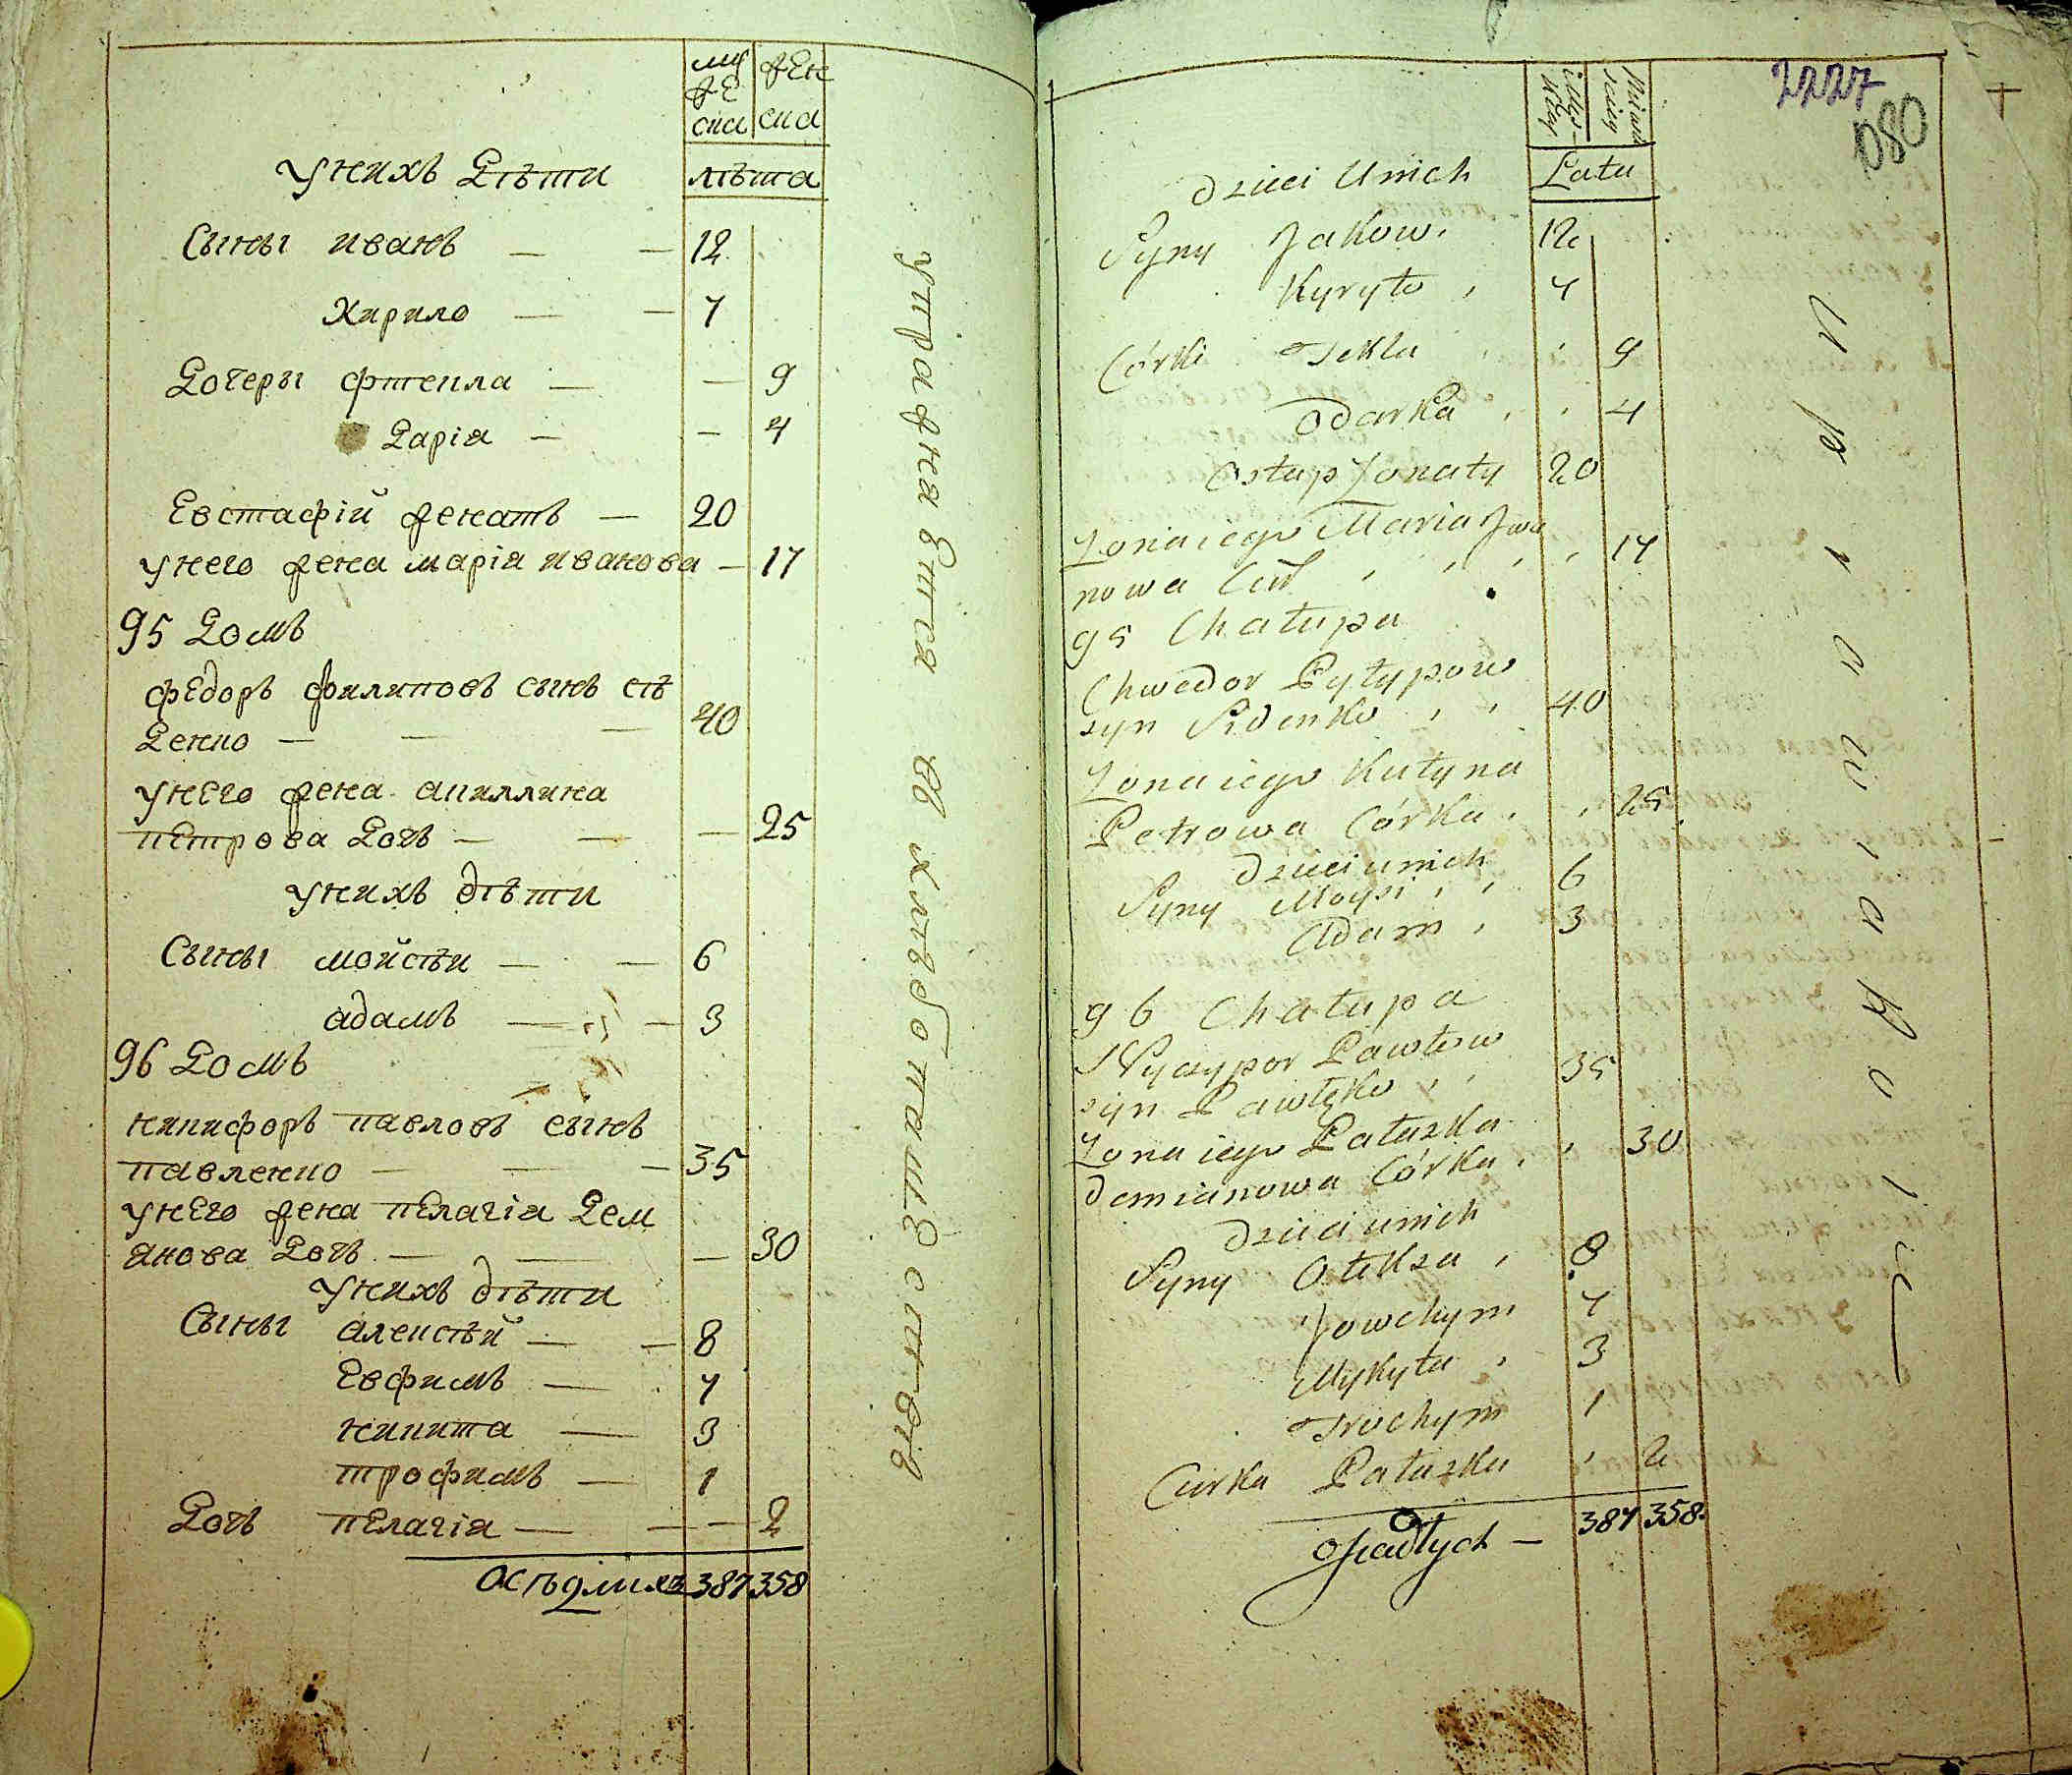 муже
ска
жен
ска
У нихъ дѣти
лѣта
Сыны иванъ — — 12
Кирило — — 7
Дочеры фтекла — — 9
Дарія — — 4
Евстафій женатъ — 20
У него жена марія иванова — 17
95 Домъ
федоръ филиповъ сынъ сѣ
денко — — — 40
У него жена акиллина
петрова Дочь — — — 25
У нихъ дѣти
Сыны мойсѣи — — 6
адамъ — — 3
96 Домъ
никифоръ павловъ сынъ
павленко — — — 35
У него жена пелагія Дем
янова Дочь — — — 30
У нихъ дѣти
Сыны алексѣй — — 8
Евфимъ — 7
никита — 3
трофимъ — 1
Дочь пелагія — — — 2
осѣдлихъ 387 358
упражняется въ хлѣбопашествѣ
2227
080
Dzieci U nich
Lata
Syny Jakow 12
Kyryło 7
Córki Tekla 9
Odarka 4
Ostap Żonaty 20
Żona iego Maria Jwa
nowa Cur 17
95 Chałupa
Chwedor Pyłypow
syn Sidenko 40
Żona iego Kułyna
Petrowa Córka 25
Dzieci u nich
Syny Moysi 6
Adam 3
96 Chałupa
Nyczypor Pawłow
syn Pawłęko 35
Żona iego Pałazka
Demianowa Córka 30
Dzieci u nich
Syny Ołeksa 8
Jowchym 7
Mykyta 3
Trochym 1
Curka Pałazka 2
osiadłych — 387 358